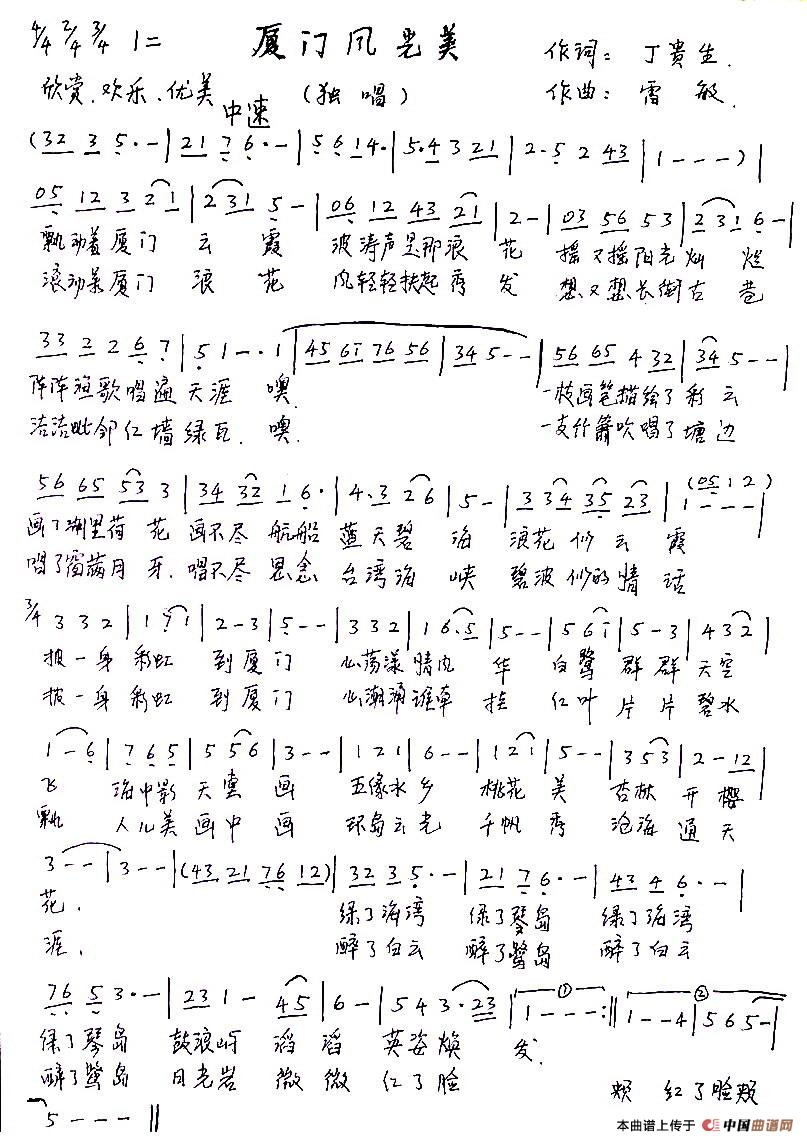 4/4 2/4 3/4 1=
厦门风光美
作词：丁贵生
欣赏、欢乐、优美
中速
（独唱）
作曲：雷敏
(32 3 5·-|21 7 6·-|5 6 1 4·|5·4 3 21|2·5 2 43|1---)|
05 12 3 2 1|2 3 1 5-|06 12 43 21|2-|03 56 53|2 3 1 6-|
飘动着厦门 云 霞 波涛声是那浪 花 摇又摇阳光灿 烂
滚动着厦门 浪 花 风轻轻扶起秀 发 想又想长街古 巷
33 2 2 6 7|5 1--·1|45 61 76 56|34 5--|56 65 4 32|34 5--|
阵阵渔歌唱遍天涯 噢 一枝画笔描绘了彩 云
洁洁毗邻红墙绿瓦、噢、 一支竹箫吹唱了塘 边
56 65 53 3|34 32 1 6·|4·3 2 6|5-|3 34 35 23|1---|
(05 1 2)
画了湖里荷 花 画不尽 航船 蓝天碧 海 浪花 似 云 霞
唱了窗满月 牙、唱不尽 思念 台湾海 峡 碧波 似的情 话
3/4 3 3 2|1 7 1|2-3|5--|3 3 2|1 6·5|5--|5 6 1|5-3|4 3 2|
披一身 彩虹 到厦门 心荡漾情内 华 白鹭 群群 天空
披一身 彩虹 到厦门 心潮涌谁牵 挂 红叶 片片 碧水
1-6|7 6 5|5 5 6|3--|1 2 1|6--|1 2 1|5--|3 5 3|2-12|
飞 海中影 天 画 五缘水 乡 桃花 美 杏林 开樱
飘 人儿美 画中 画 环岛云 光 千帆 秀 沧海 通天
3--|3--|(43 21 76 12)|32 3 5·-|21 7 6·-|43 4 6·-|
花、 绿了海湾 绿了琴岛 绿了海湾
涯、 醉了白云 醉了鹭岛 醉了白云
76 5 3·-|23 1- 45|6-|5 4 3·23|1---:|1--4|5 6 5-|
① ②
绿了琴岛 鼓浪屿 滔 滔 英姿焕 发
醉了鹭岛 日光岩 微 微 红了脸 颊 红了脸颊
5---||
本曲谱上传于 中国曲谱网